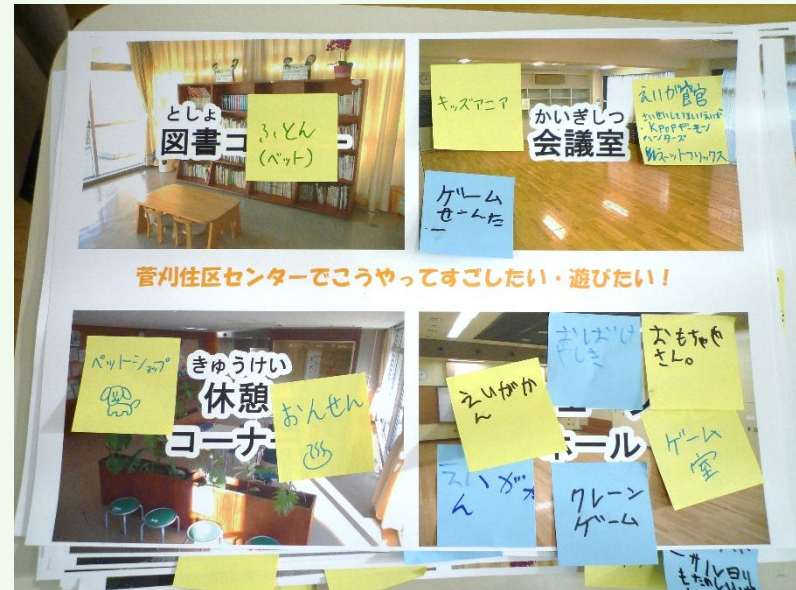 としょ
図書コ
ー
ふとん
(ベット)
キッズアニア
かいぎしつ
会議室
えいが館
・KPOPデーモン
ハンターズ
ネットフリックス
ゲーム
せーんた
ー
菅刈住区センターでこうやってすごしたい・遊びたい！
ペットショップ
きゅうけい
休憩
コーナー
おんせん
おばけ
やしき
おもちゃや
さん。
えいがか
ん
ホール
ゲーム
室
えいがか
ん
クレーン
ゲーム